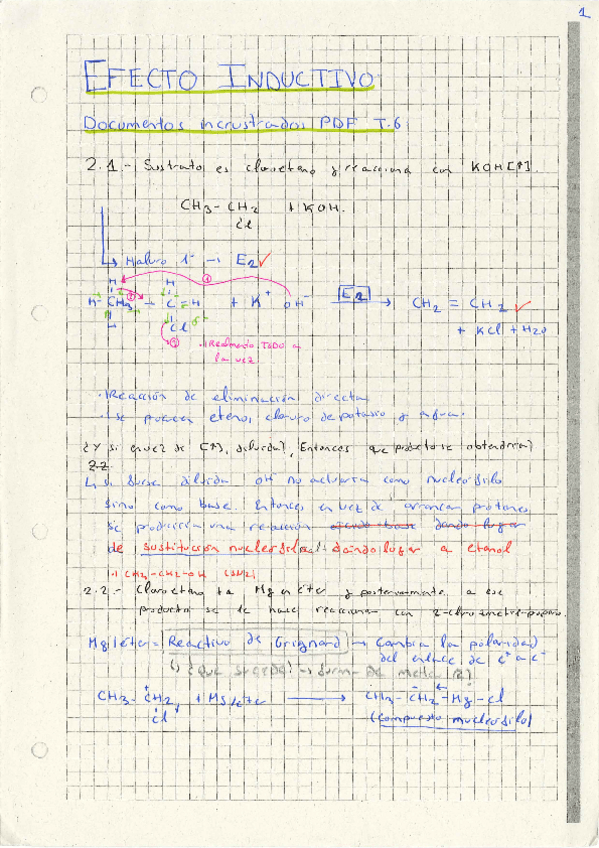 1
EFECTO INDUCTIVO
Documentos incrustados PDF T.6
2.1.- Sustrato es cloroetano y reacciona con KOH[↑].
CH3-CH2 + KOH.
Cl
Haluro 1º → E2 ✓
H H ①
H- CH3 - C - H + K+ OH- E2 CH2 = CH2 ✓
Cl δ- + KCl + H2O
Realmente TODO a
la vez
· Reacción de eliminación directa
· se producen eteno, cloruro de potasio y agua.
¿Y si en vez de [↑], diluida?, Entonces que producto se obtendría?
2.2.
si fuese diluida OH no actuaría como nucleófilo
sino como base. Entonces en vez de arrancar protones
se produciría una reacción
de sustitución nucleófila dando lugar a etanol
CH3-CH2-OH (SN2)
2.2.- Cloroetano + Mg en éter y posteriormente a ese
producto se le hace reaccionar con 2-cloro-2-metil-propano.
Mg/éter = Reactivo de Grignard → Cambia la polaridad
del enlace de C+ a C-
¿Que sucede? →
CH3-CH2 + Mg/éter CH3-CH2-Mg-Cl
Cl (Compuesto nucleófilo)